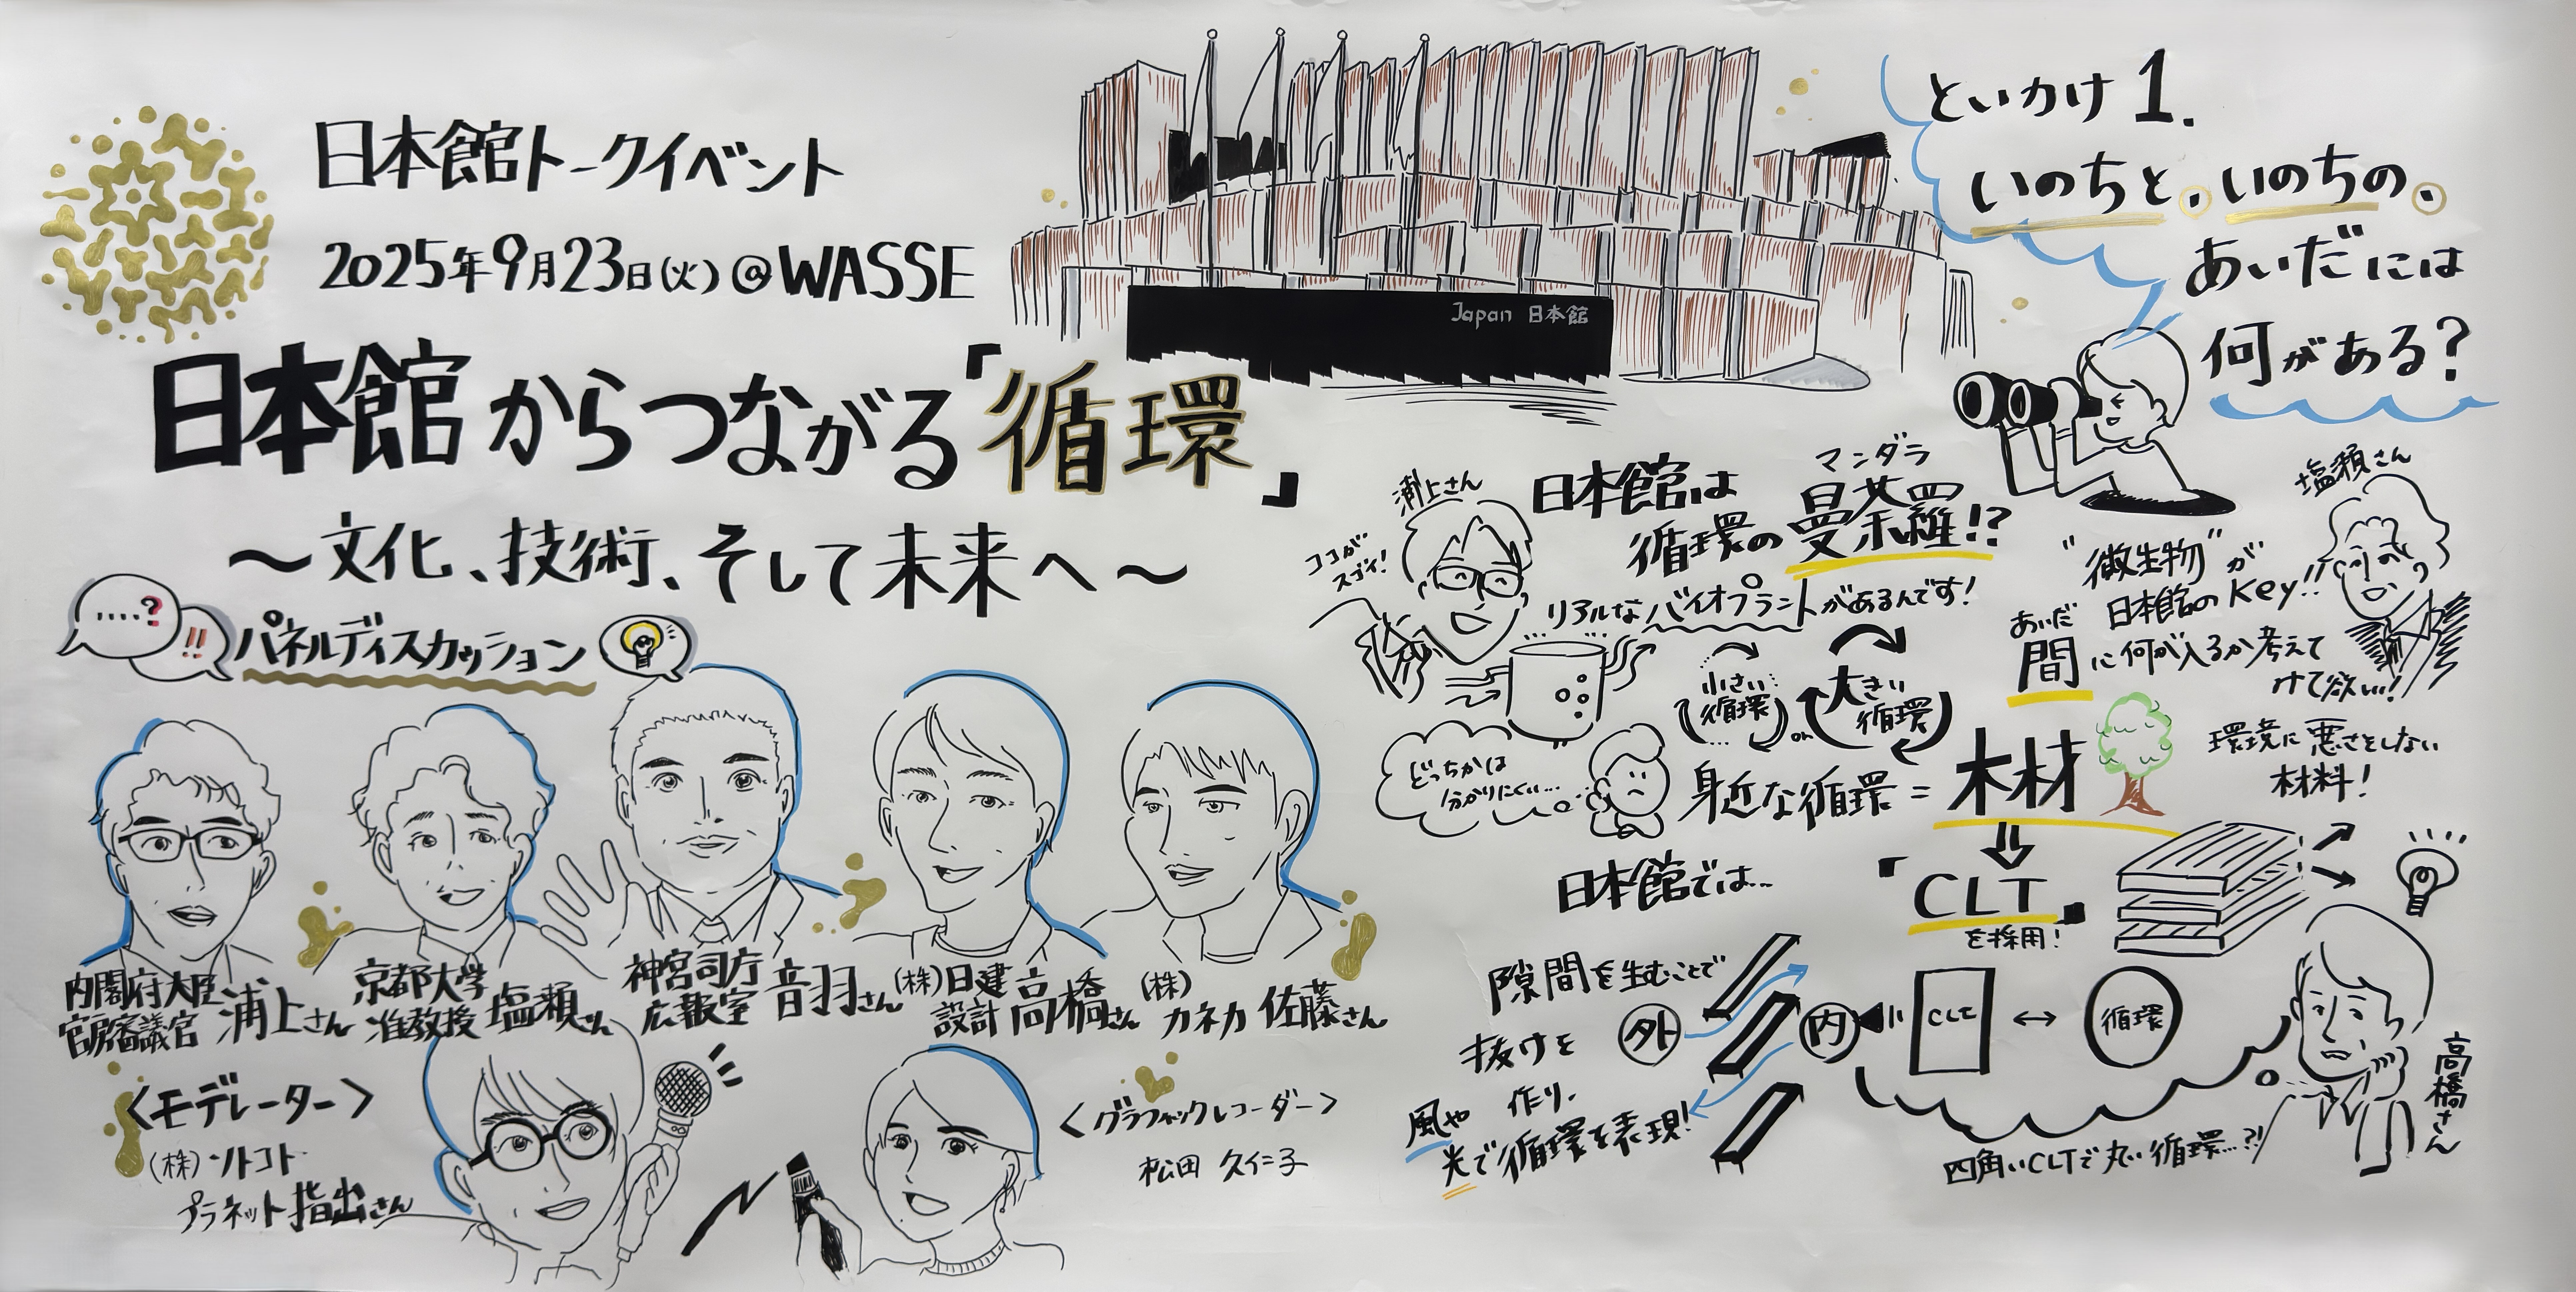 日本館トークイベント
2025年9月23日(火)@WASSE
日本館からつながる「循環」
〜文化、技術、そして未来へ〜
....?
!!
パネルディスカッション
内閣府大臣
官房審議官
浦上さん
京都大学
准教授
塩瀬さん
神宮司庁
広報室
音羽さん
(株)日建
設計
高橋さん
(株)
カネカ
佐藤さん
<モデレーター>
(株)ソトコト
プラネット 指出さん
<グラフィックレコーダー>
松田 久仁子
Japan 日本館
といかけ1.
いのちと、いのちの、
あいだには
何がある?
浦上さん
ココが
スゴイ!
日本館は
循環の曼荼羅!?
マンダラ
リアルなバイオプラントがあるんです!
小さい
循環
or
大きい
循環
どっちかは
分かりにくい…
塩瀬さん
"微生物"が
日本館のKey!!
あいだ
間に何が入るか考えて
けて欲しい!
身近な循環=木材
環境に悪さをしない
材料!
日本館では…
「CLT」
を採用!
隙間を生むことで
抜けを
作り、
風や
光で循環を表現!
外
内
CLT
↔
循環
四角いCLTで丸い循環…?!
高橋さん